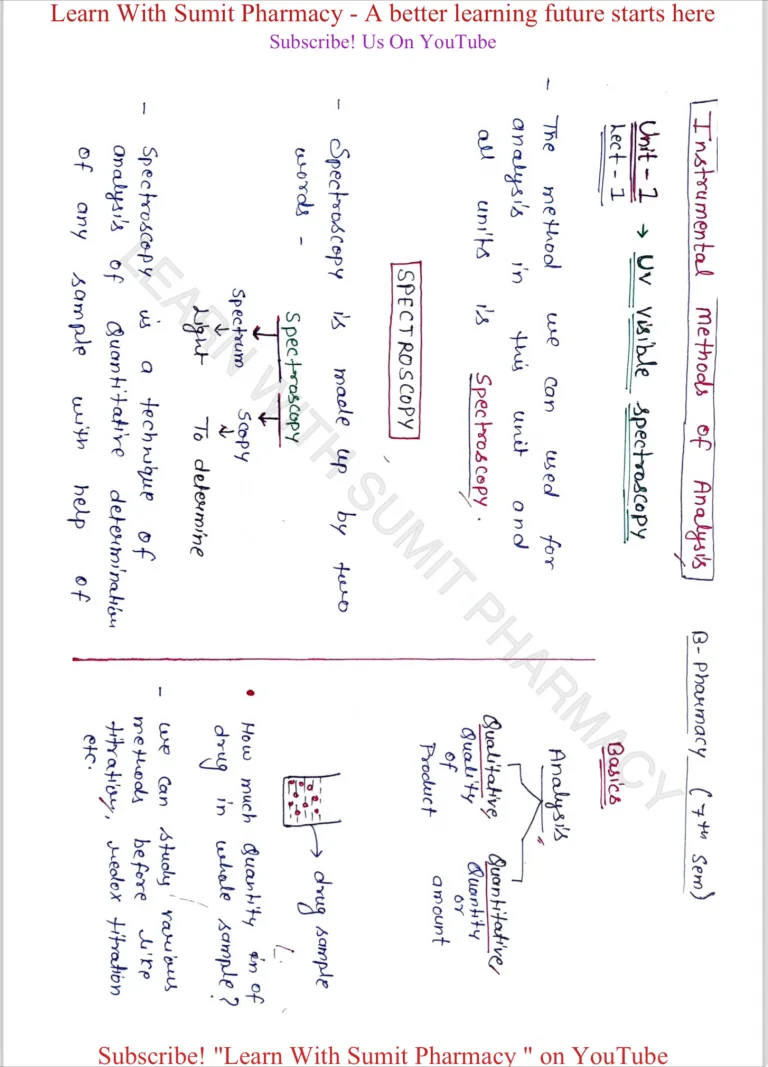 Learn With Sumit Pharmacy - A better learning future starts here
Subscribe! Us On YouTube
Instrumental methods of Analysis
B-Pharmacy (7th Sem)
Unit-1 → UV visible spectroscopy
Lect-1
- The method we can used for
analysis in this unit and
all units is Spectroscopy.
SPECTROSCOPY
- Spectroscopy is made up by two
words -
Spectroscopy
Spectrum Scopy
Light To determine
- Spectroscopy is a technique of
analysis of Quantitative determination
of any sample with help of
Basics
Analysis
Qualitative Quantitative
Quality Quantity
of or
Product amount
→ drug sample
• How much Quantity in of
drug in whole sample?
- we can study various
methods before like
titration, redox titration
etc.
LEARN WITH SUMIT PHARMACY
Subscribe! "Learn With Sumit Pharmacy " on YouTube